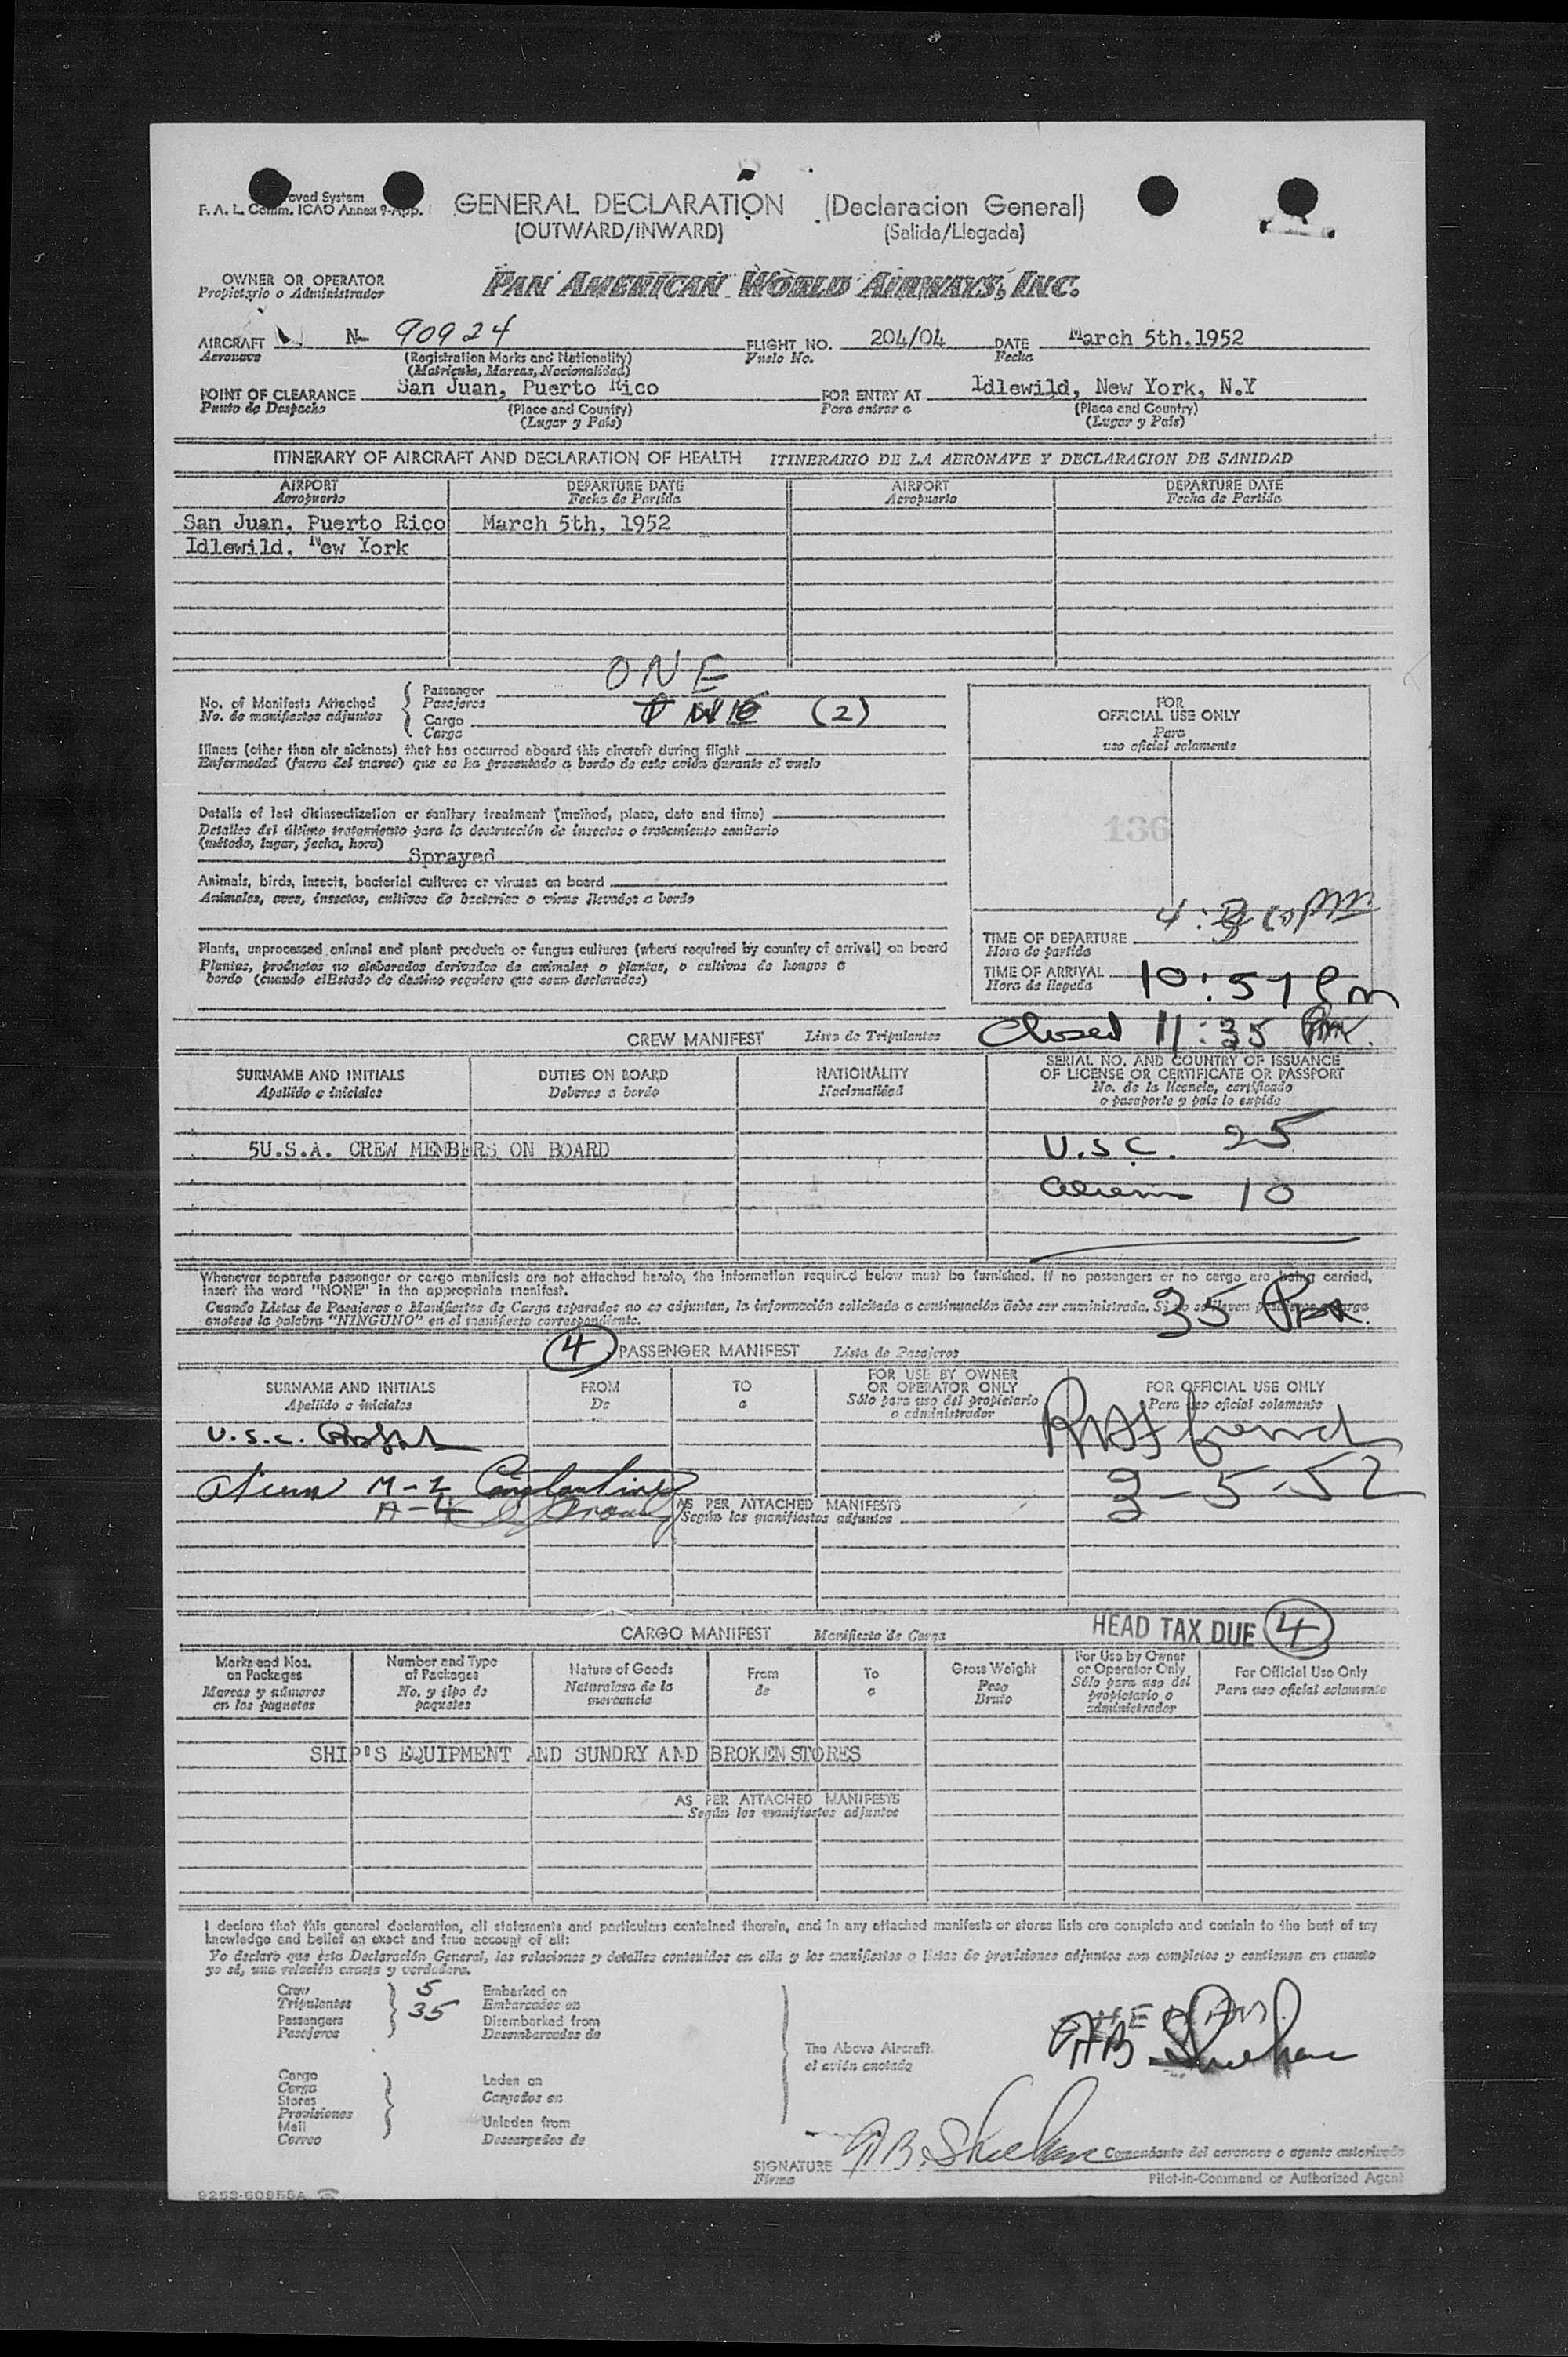 oved System
F. A. L. Comm. ICAO Annex 9-App.
GENERAL DECLARATION (Declaracion General)
(OUTWARD/INWARD) (Salida/Llegada)
OWNER OR OPERATOR
Propietario o Administrador
PAN AMERICAN WORLD AIRWAYS, INC.
AIRCRAFT N- 90924 FLIGHT NO. 204/04 DATE March 5th, 1952
Aeronave (Registration Marks and Nationality) Vuelo No. Fecha
(Matricula, Marcas, Nacionalidad)
POINT OF CLEARANCE San Juan, Puerto Rico FOR ENTRY AT Idlewild, New York, N.Y
Punto de Despacho (Place and Country) Para entrar a (Place and Country)
(Lugar y País) (Lugar y País)
ITINERARY OF AIRCRAFT AND DECLARATION OF HEALTH ITINERARIO DE LA AERONAVE Y DECLARACION DE SANIDAD
AIRPORT DEPARTURE DATE AIRPORT DEPARTURE DATE
Aeropuerto Fecha de Partida Aeropuerto Fecha de Partida
San Juan, Puerto Rico March 5th, 1952
Idlewild, New York
ONE
No. of Manifests Attached
No. de manifiestos adjuntos
Passenger
Pasajeros
Cargo (2)
Carga
FOR
OFFICIAL USE ONLY
Para
uso oficial solamente
Illness (other than air sickness) that has occurred aboard this aircraft during flight
Enfermedad (fuera del mareo) que se ha presentado a bordo de este avión durante el vuelo
Details of last disinsectization or sanitary treatment (method, place, date and time)
Detalles del último tratamiento para la destrucción de insectos o tratamiento sanitario
(método, lugar, fecha, hora)
Sprayed
136
Animals, birds, insects, bacterial cultures or viruses on board
Animales, aves, insectos, cultivos de bacterias o virus llevados a bordo
Plants, unprocessed animal and plant products or fungus cultures (where required by country of arrival) on board
Plantas, productos no elaborados derivados de animales o plantas, o cultivos de hongos a
bordo (cuando el Estado de destino requiere que sean declarados)
TIME OF DEPARTURE
Hora de partida
TIME OF ARRIVAL 10:57 Pm
Hora de llegada
Closed 11:35 PM.
CREW MANIFEST Lista de Tripulantes
SURNAME AND INITIALS DUTIES ON BOARD NATIONALITY SERIAL NO. AND COUNTRY OF ISSUANCE
OF LICENSE OR CERTIFICATE OR PASSPORT
Apellido e iniciales Deberes a bordo Nacionalidad No. de la licencia, certificado
o pasaporte y país lo expide
5U.S.A. CREW MEMBERS ON BOARD
U.S.C. 25
Aliens 10
Whenever separate passenger or cargo manifests are not attached hereto, the information required below must be furnished. If no passengers or no cargo are being carried,
insert the word "NONE" in the appropriate manifest.
Cuando Listas de Pasajeros o Manifiestos de Carga separados no se adjuntan, la información solicitada a continuación debe ser suministrada. Si no se lleven pasajeros o carga
anotese la palabra "NINGUNO" en el manifiesto correspondiente.
35 Pax.
4 PASSENGER MANIFEST Lista de Pasajeros
SURNAME AND INITIALS FROM TO FOR USE BY OWNER
OR OPERATOR ONLY FOR OFFICIAL USE ONLY
Apellido e iniciales De a Sólo para uso del propietario
o administrador Para uso oficial solamente
U.S.C.
Aliens M-2
A-4
3-5-52
AS PER ATTACHED MANIFESTS
Según los manifiestos adjuntos
HEAD TAX DUE 4
CARGO MANIFEST Manifiesto de Carga
Marks and Nos.
on Packages
Marcas y números
en los paquetes
Number and Type
of Packages
No. y tipo de
paquetes
Nature of Goods
Naturaleza de la
mercancía
From
de
To
a
Gross Weight
Peso
Bruto
For Use by Owner
or Operator Only
Sólo para uso del
propietario o
administrador
For Official Use Only
Para uso oficial solamente
SHIP'S EQUIPMENT AND SUNDRY AND BROKEN STORES
AS PER ATTACHED MANIFESTS
Según los manifiestos adjuntos
I declare that this general declaration, all statements and particulars contained therein, and in any attached manifests or stores lists are complete and contain to the best of my
knowledge and belief an exact and true account of all:
Yo declaro que èsta Declaración General, las relaciones y detalles contenidos en ella y los manifiestos o listas de provisiones adjuntos son completos y contienen en cuanto
yo sé, una relación exacta y verdadera.
Crew 5
Tripulantes
Passengers 35
Pasajeros
Embarked on
Embarcados en
Disembarked from
Desembarcados de
The Above Aircraft.
el avión anotado
Cargo
Carga
Stores
Provisiones
Mail
Correo
Laden on
Cargados en
Unladen from
Descargados de
B. Sheehan
SIGNATURE B. Sheehan Comandante del aeronave o agente autorizado
Firma Pilot-in-Command or Authorized Agent